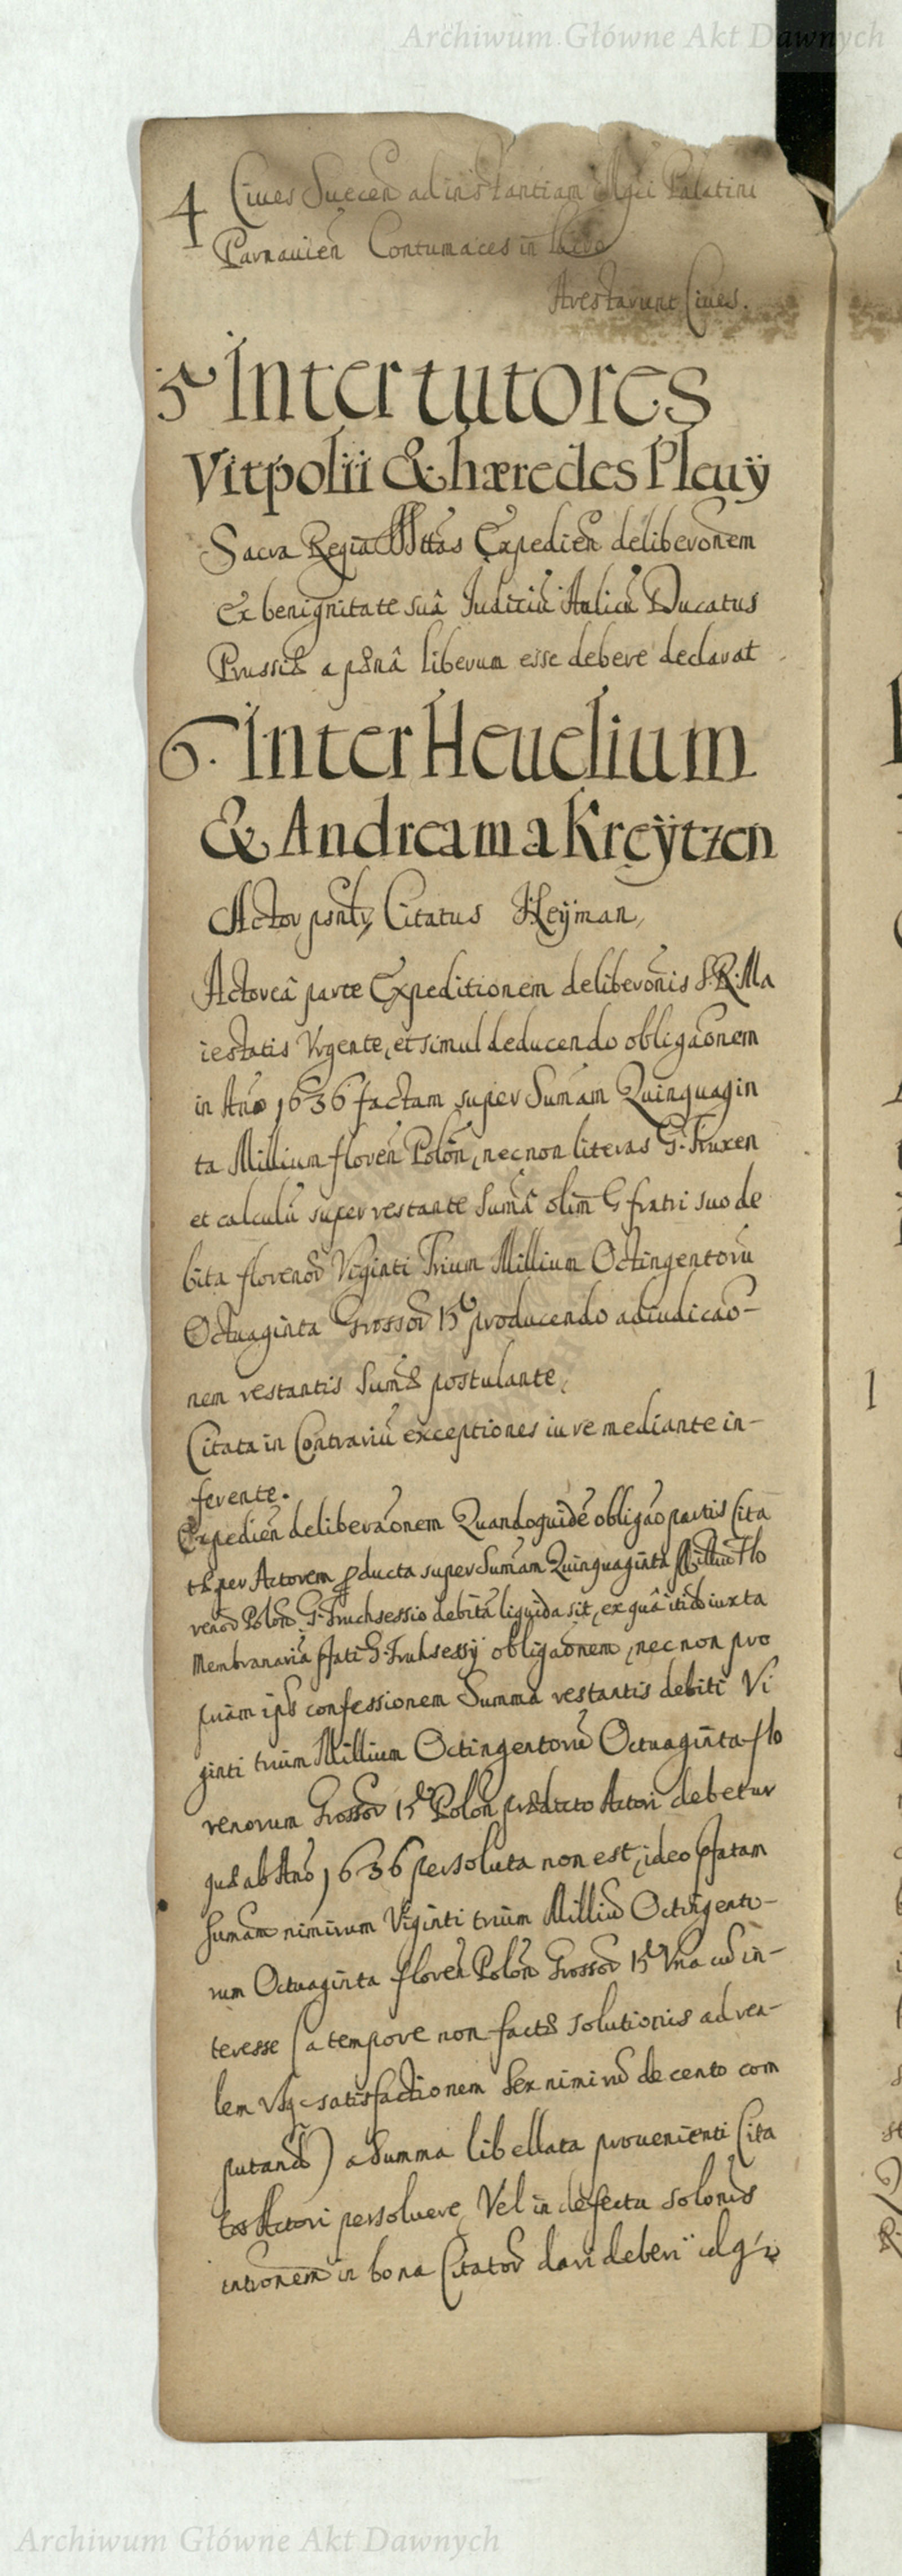 Archiwum Główne Akt Dawnych
4 Ciues Suecen ad instantiam Mgci Palatini
Parnauien Contumaces in lucro
Arestarunt Ciues.
5 Inter tutores
Vitpolii & hæredes Pleuÿ
Sacra Regia Mttas Expedien deliberonem
Ex benignitate suâ Iudiciũ Aulicũ Ducatus
Prussiæ a pœnâ liberum esse debere declarat
6. Inter Heuelium
& Andream a Kreÿtzen
Actor psnlr, Citatus Heÿman,
Actoreâ parte Expeditionem deliberonis S.R.Ma
iestatis Vrgente, et simul deducendo obligaonem
in Ano 1636 factam super Sumam Quinquagin
ta Millium floren Polon, necnon literas G. Truxen
et calculũ super restante Sumâ olim G fratri suo de
bita florenoꝝ Viginti Trium Millium Octingentorũ
Octuaginta Grossoꝝ 15 producendo adiudicao-
nem restantis Sumæ postulante,
Citata in Contrariũ exceptiones iure mediante in-
ferente.
Expedien deliberaonem Quandoquidẽ obligao partis Cita
tæ per Actorem ꝓducta super Sumam Quinquaginta Milliũ Flo
renoꝝ Polon G. Truchsessio debitâ liquida sit, ex quâ itid iuxta
Membranariã pfati G. Truhsessÿ obligaonem, necnon pro
puam ips confessionem Summa restantis debiti Vi
ginti trium Millium Octingentorũ Octuaginta flo
renorum Grossoꝝ 15 Polon prædicto Actori debetur
quæ ab Ano 1636 persoluta non est, ideo pfatam
Sumam nimirum Viginti trium Milliũ Octingento-
rum Octuaginta floren Polon Grossoꝝ 15 Vna cũ in-
teresse (a tempore non factæ solutionis ad rea-
lem vsq satisfactionem Sex nimirũ de cento com
putand) a Summa libellata prouenienti Cita
tos Actori persoluere, Vel in defectu solonis
intronem in bona Citatoꝝ dari deberi
Archiwum Główne Akt Dawnych